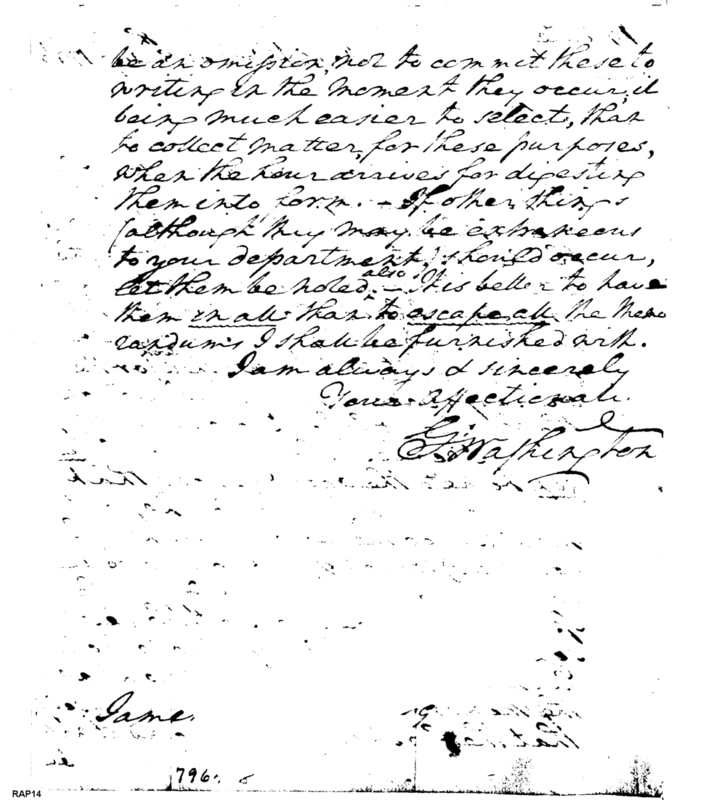 be an omission, not to commit these to
writing in the moment they occur; it
being much easier to select, than
to collect matter, for these purposes,
when the hour arrives for digesting
them into form. - If other things
(although they may be extraneous
to your department) should occur,
let them be noted also. - It is better to have
them in all than to escape all the Memo
randums I shall be furnished with.
I am always & sincerely
Your Affectionate
G: Washington
Jame
796.
RAP14